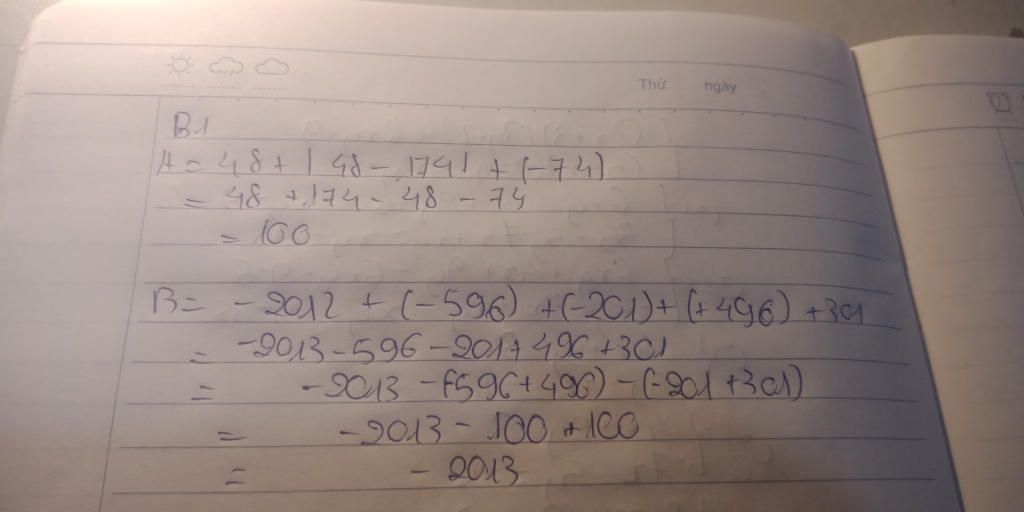 Thứ ngày
B1
A = 48 + | 48 - 174 | + (-74)
= 48 + 174 - 48 - 74
= 100
B = -2012 + (-596) + (-201) + (+496) + 301
= -2013 - 596 - 201 + 496 + 301
= -2013 - (-596 + 496) - (-201 + 301)
= -2013 - 100 + 100
= -2013